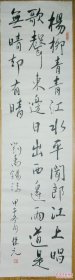 楊柳青青江水平聞郎江上唱
歌聲東邊日出西邊雨道是
無晴却有晴
劉禹錫詩